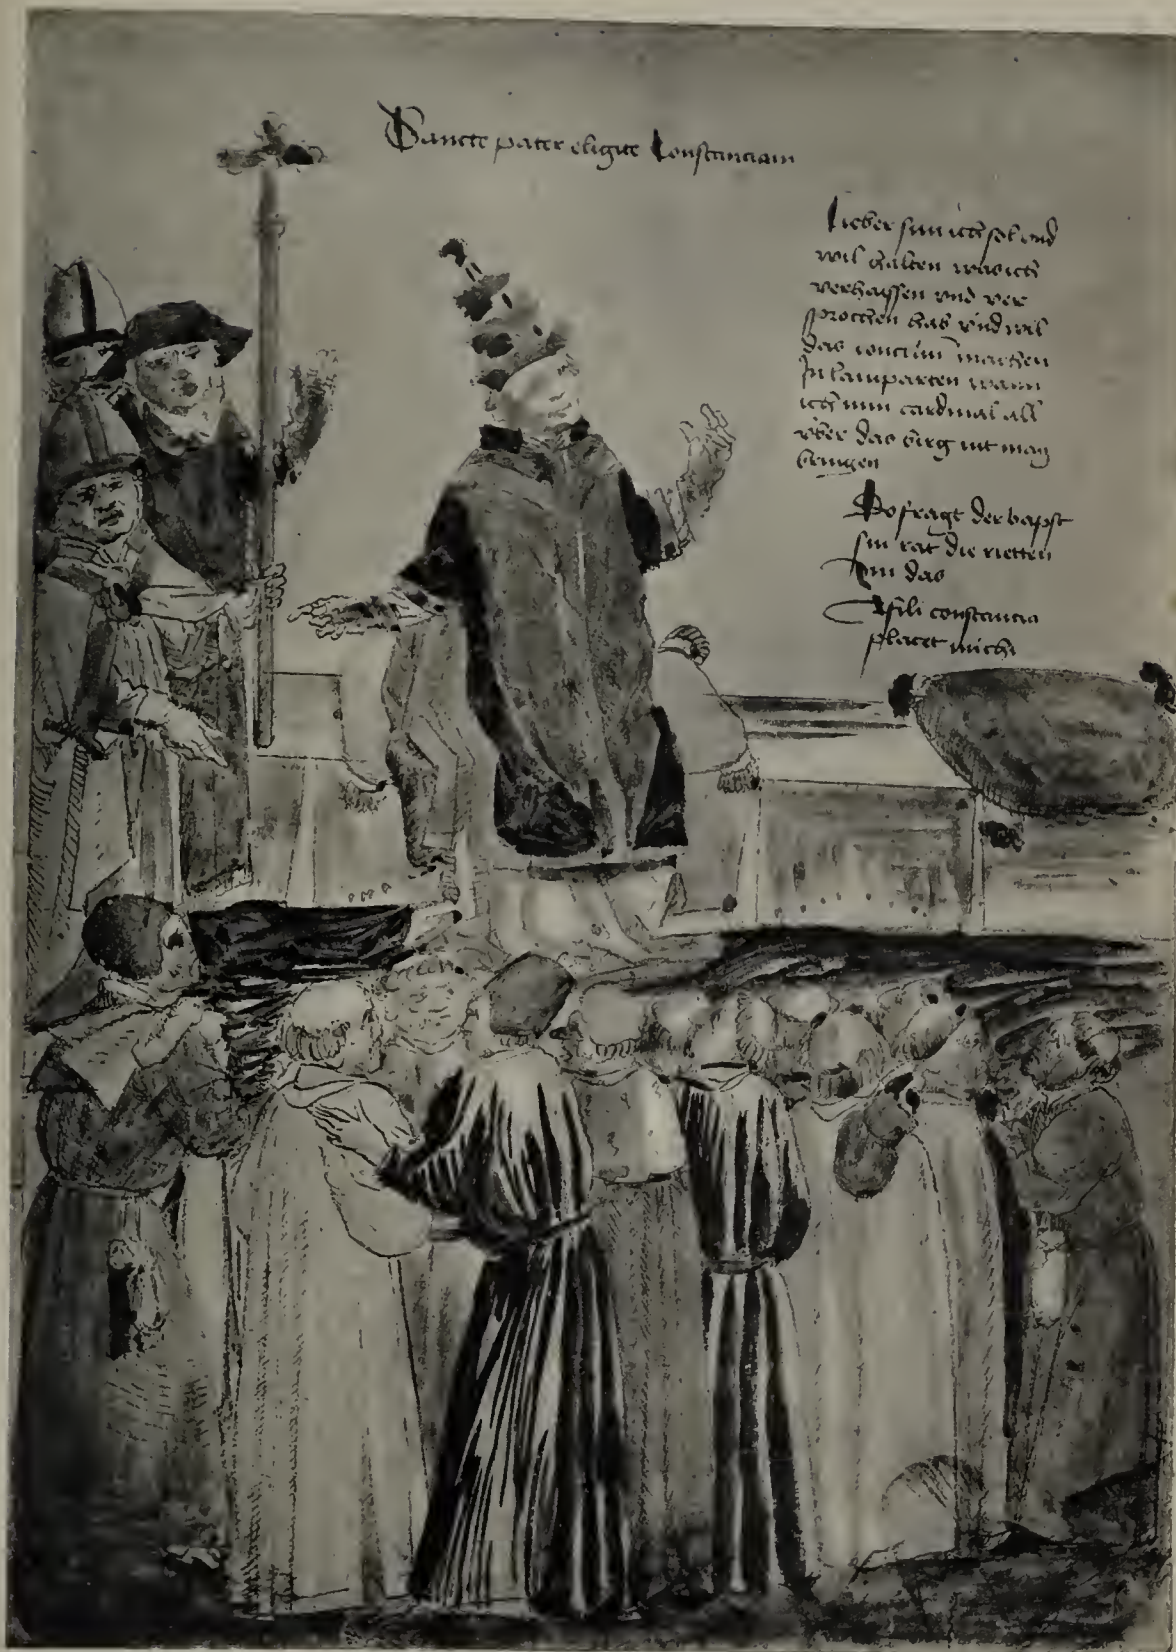 Sancte pater eligite Constanciam
Lieber sun ich sol und
wil halten was ich
verhayssen vnd ver
sprochen hab vnd wil
das concilium machen
In lamparten wann
ich min cardinal all
vber das birg nit mag
bringen
Do fragt der bapst
sin rat die rietten
im das
O fili constancia
placet michi